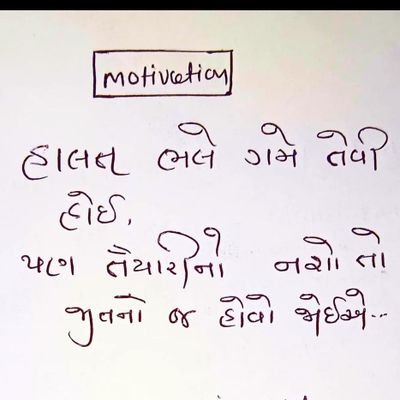 motivation
હાલત ભલે ગમે તેવી
હોઈ,
પણ તૈયારીનો નશો તો
જીતનો જ હોવો જોઈએ...